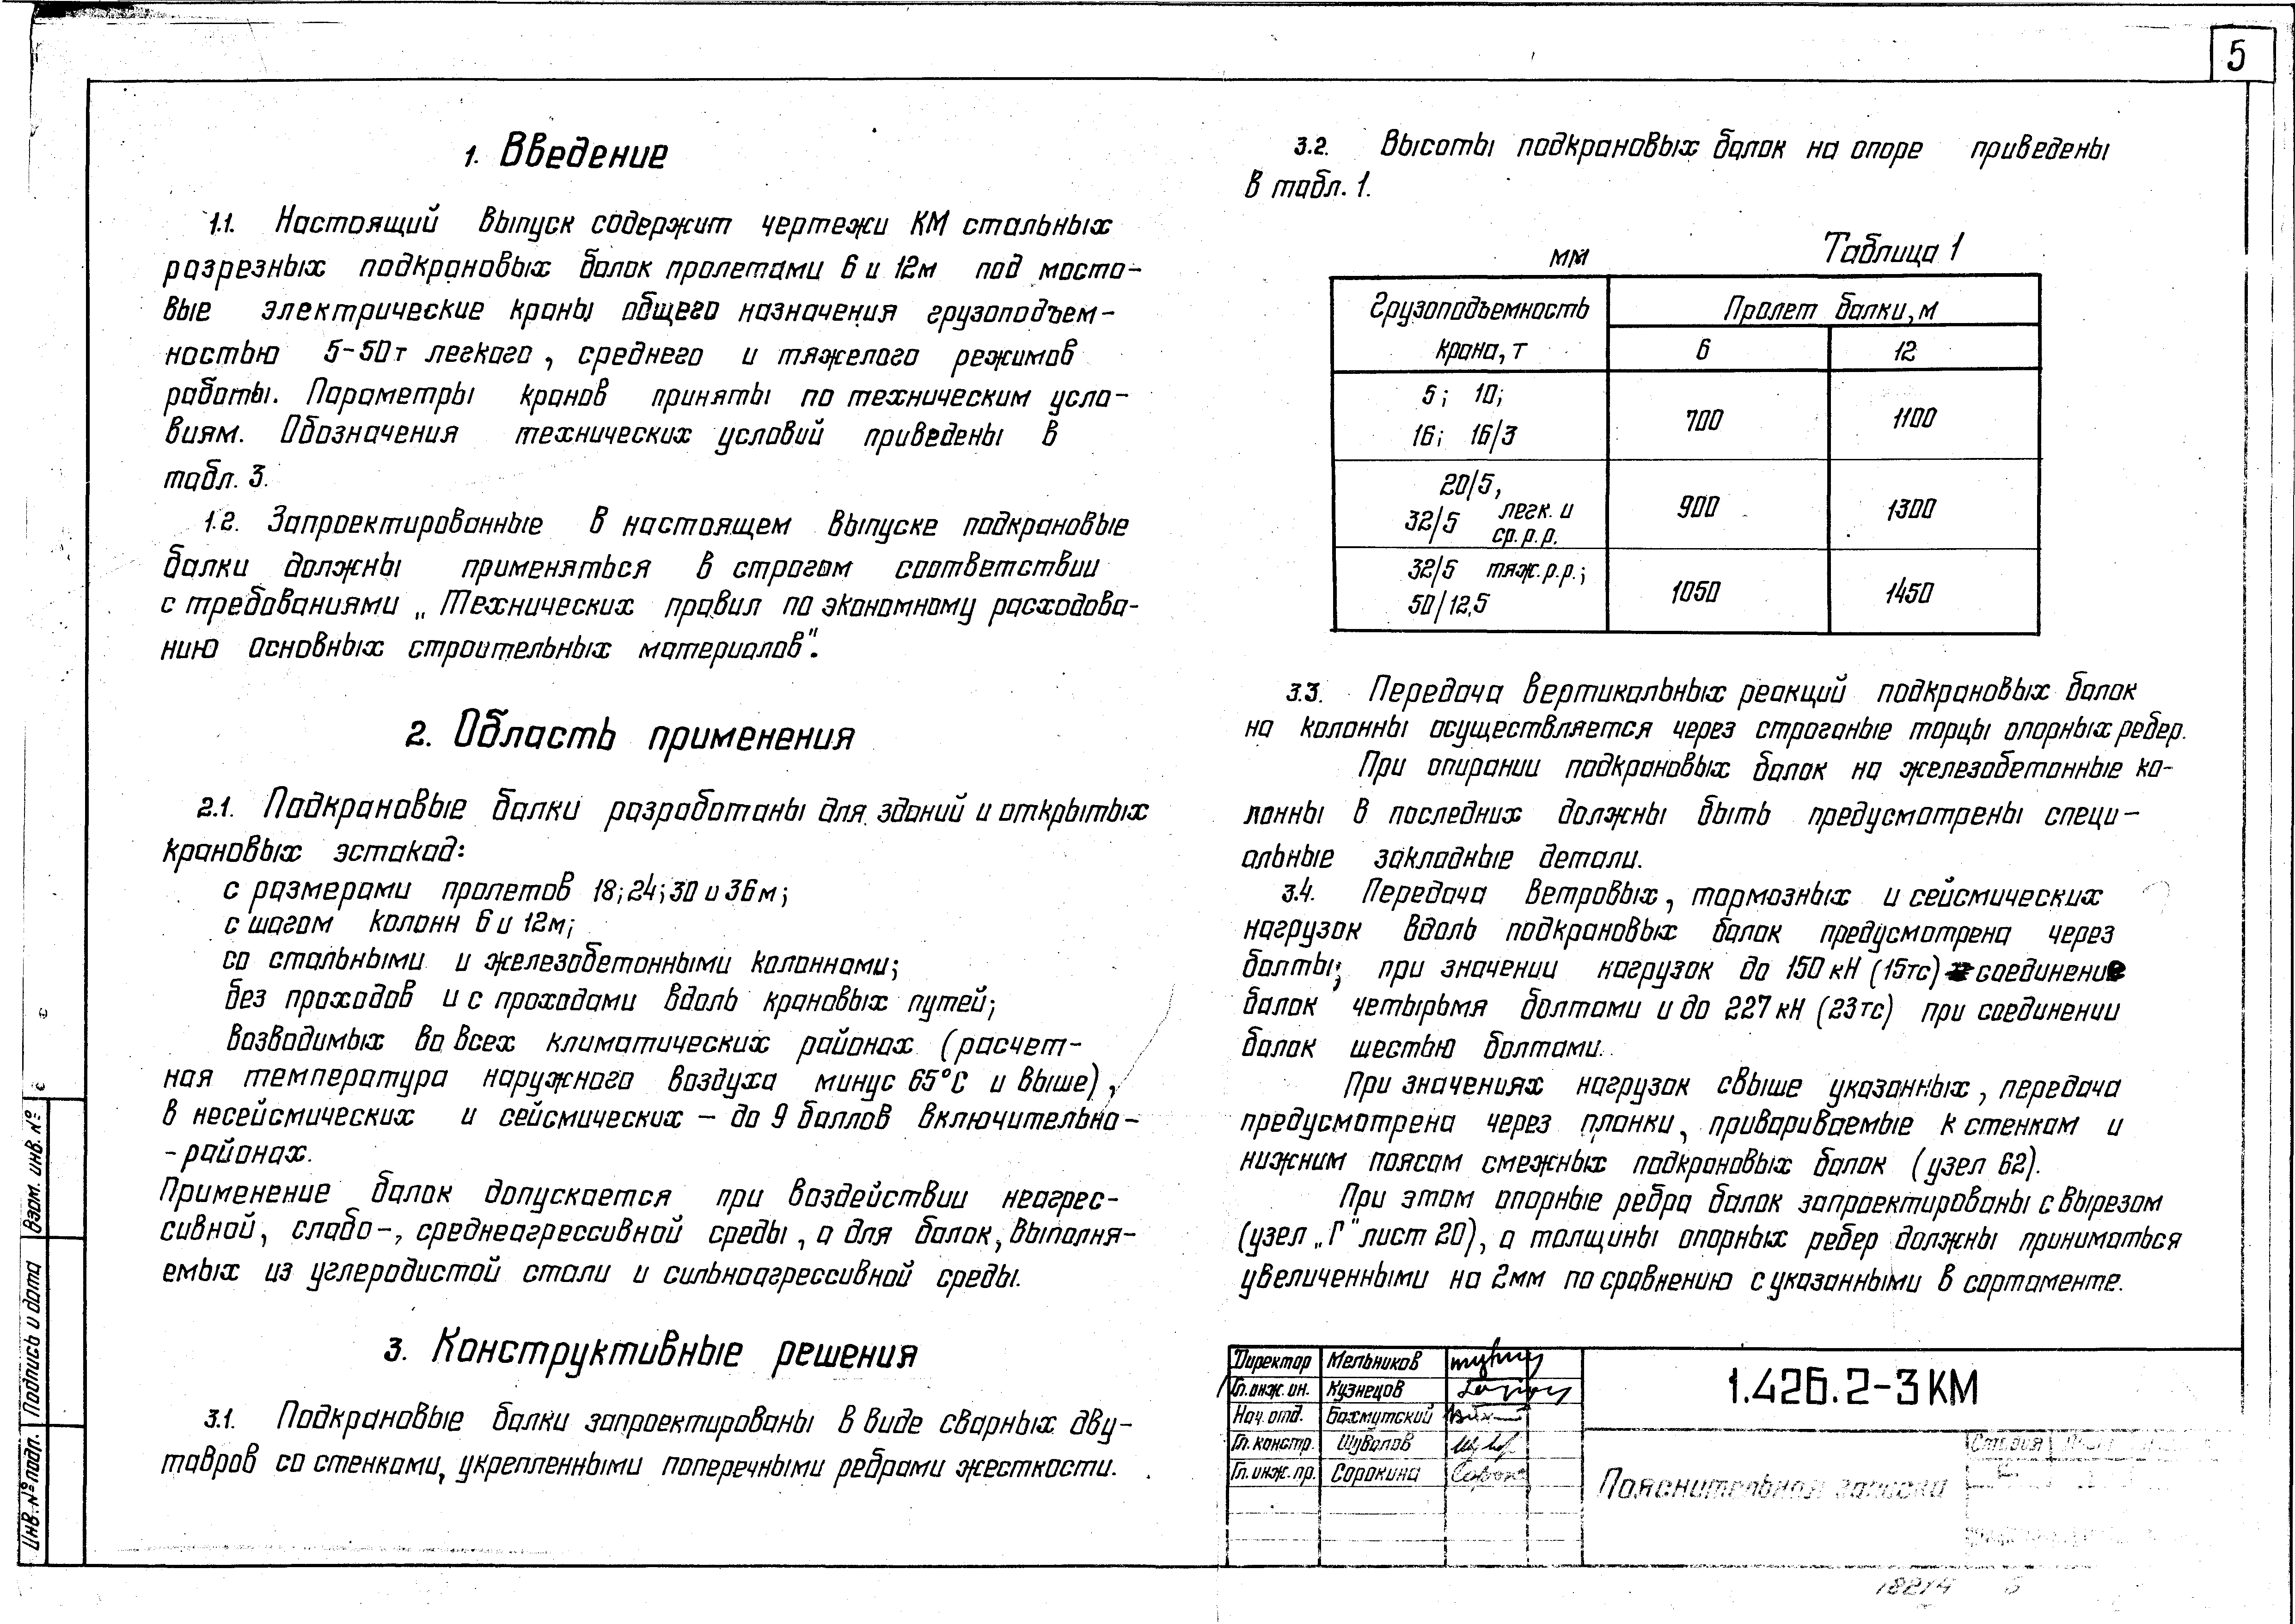 5
1. Введение
1.1. Настоящий выпуск содержит чертежи КМ стальных
разрезных подкрановых балок пролетами 6 и 12м под мосто-
вые электрические краны общего назначения грузоподъем-
ностью 5-50т легкого, среднего и тяжелого режимов
работы. Параметры кранов приняты по техническим усло-
виям. Обозначения технических условий приведены в
табл. 3.
1.2. Запроектированные в настоящем выпуске подкрановые
балки должны применяться в строгом соответствии
с требованиями „Технических правил по экономному расходова-
нию основных строительных материалов".
2. Область применения
2.1. Подкрановые балки разработаны для зданий и открытых
крановых эстакад:
с размерами пролетов 18; 24; 30 и 36м;
с шагом колонн 6 и 12м;
со стальными и железобетонными колоннами;
без проходов и с проходами вдоль крановых путей;
возводимых во всех климатических районах (расчет-
ная температура наружного воздуха минус 65°С и выше),
в несейсмических и сейсмических - до 9 баллов включительно-
- районах.
Применение балок допускается при воздействии неагрес-
сивной, слабо-, среднеагрессивной среды, а для балок, выполня-
емых из углеродистой стали и сильноагрессивной среды.
3. Конструктивные решения
3.1. Подкрановые балки запроектированы в виде сварных дву-
тавров со стенками, укрепленными поперечными ребрами жесткости.
3.2. Высоты подкрановых балок на опоре приведены
в табл. 1.
мм Таблица 1
Грузоподъемность крана, т Пролет балки, м
6 12
5; 10;
16; 16/3 700 1100
20/5,
32/5 легк. и ср. р.р. 900 1300
32/5 тяж. р.р.;
50/12,5 1050 1450
3.3. Передача вертикальных реакций подкрановых балок
на колонны осуществляется через строганые торцы опорных ребер.
При опирании подкрановых балок на железобетонные ко-
лонны в последних должны быть предусмотрены специ-
альные закладные детали.
3.4. Передача ветровых, тормозных и сейсмических
нагрузок вдоль подкрановых балок предусмотрена через
болты; при значении нагрузок до 150 кН (15тс) соединение
балок четырьмя болтами и до 227 кН (23тс) при соединении
балок шестью болтами.
При значениях нагрузок свыше указанных, передача
предусмотрена через планки, привариваемые к стенкам и
нижним поясам смежных подкрановых балок (узел 62).
При этом опорные ребра балок запроектированы с вырезом
(узел „Г" лист 20), а толщины опорных ребер должны приниматься
увеличенными на 2мм по сравнению с указанными в сортаменте.
Директор Мельников
Гл. инж. ин. Кузнецов
Нач. отд. Бахмутский
Гл. констр. Шувалов
Гл. инж. пр. Сорокина
1.426.2-3 КМ
Пояснительная записка
Стадия Лист
Взам. инв. №
Подпись и дата
Инв. № подл.